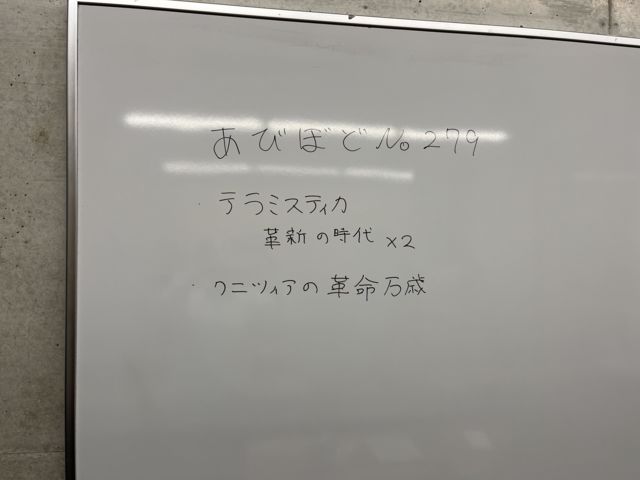 あびぼど No 279
・テラミスティカ
革新の時代 ×2
・クニツィアの革命万歳